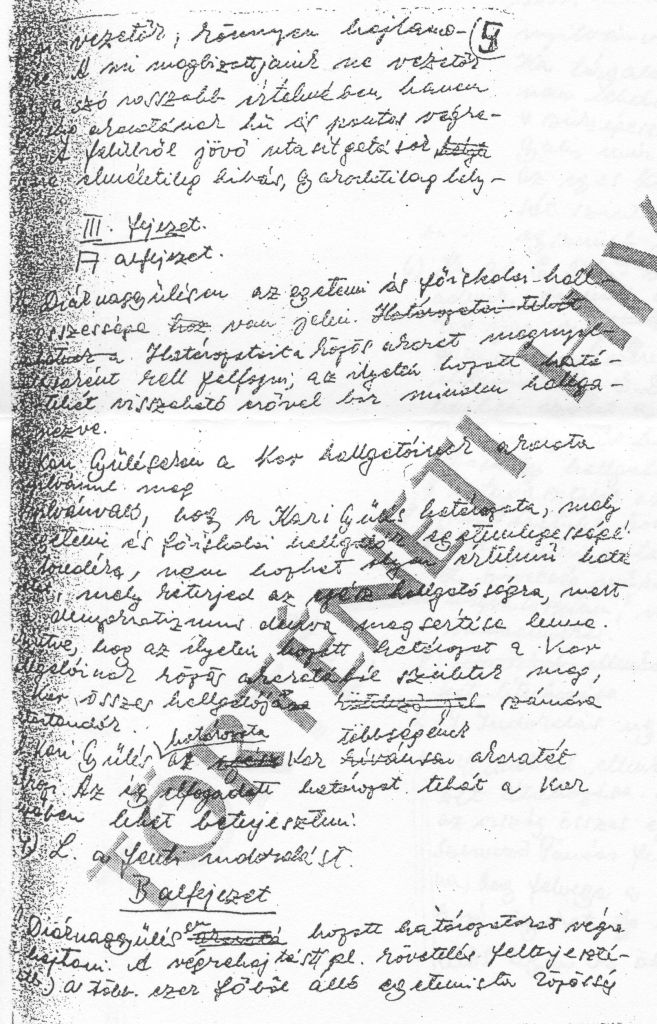 vezetők; könnyen hajlamo- 5
A mi megbizottjaink ne vezetők
a szó rosszabb értelmében hanem
akaratának hű és pontos végre-
felülről jövő utasitgatások
elméletileg hibás, gyakorlatilag hely-
III. fejezet.
A alfejezet.
Diáknagygyülésen az egyetemi és főiskolai hall-
összessége hoz van jelen. Határozatai tehát
a Határozataik a közös akarat megnyil-
kell felfogni; az ilyetén hozott hatá-
tehát visszaható erővel bir minden hallga-
nézve.
Kari Gyüléseken a Kar hallgatóinak akarata
nyilvánul meg
nyilvánvaló, hogy a Kari Gyülés határozata, mely
egyetemi és főiskolai hallgatók egyetemlegességé-
nem hozhat olyan értelmű hatá
mely kiterjed az egész hallgatóságra, mert
a demokratizmus durva megsértése lenne.
hogy az ilyetén hozott határozat a Kar
hallgatóinak közös akaratából születik meg,
Kar összes hallgatójára kötelező jel számára
betartandók.
határozata többségének
Kari Gyülés az egész Kar kivánsa akaratát
Az igy elfogadott határozat tehát a Kar
lehet beterjeszteni.
L. a fenti indokolást.
B alfejezet
Diáknagygyülésen akarata hozott határozatokat végre
hajtani. A végrehajtást pl. követelés felterjeszté-
a több ezer főből álló egyetemista közösség
TÖRTÉNETI HIV